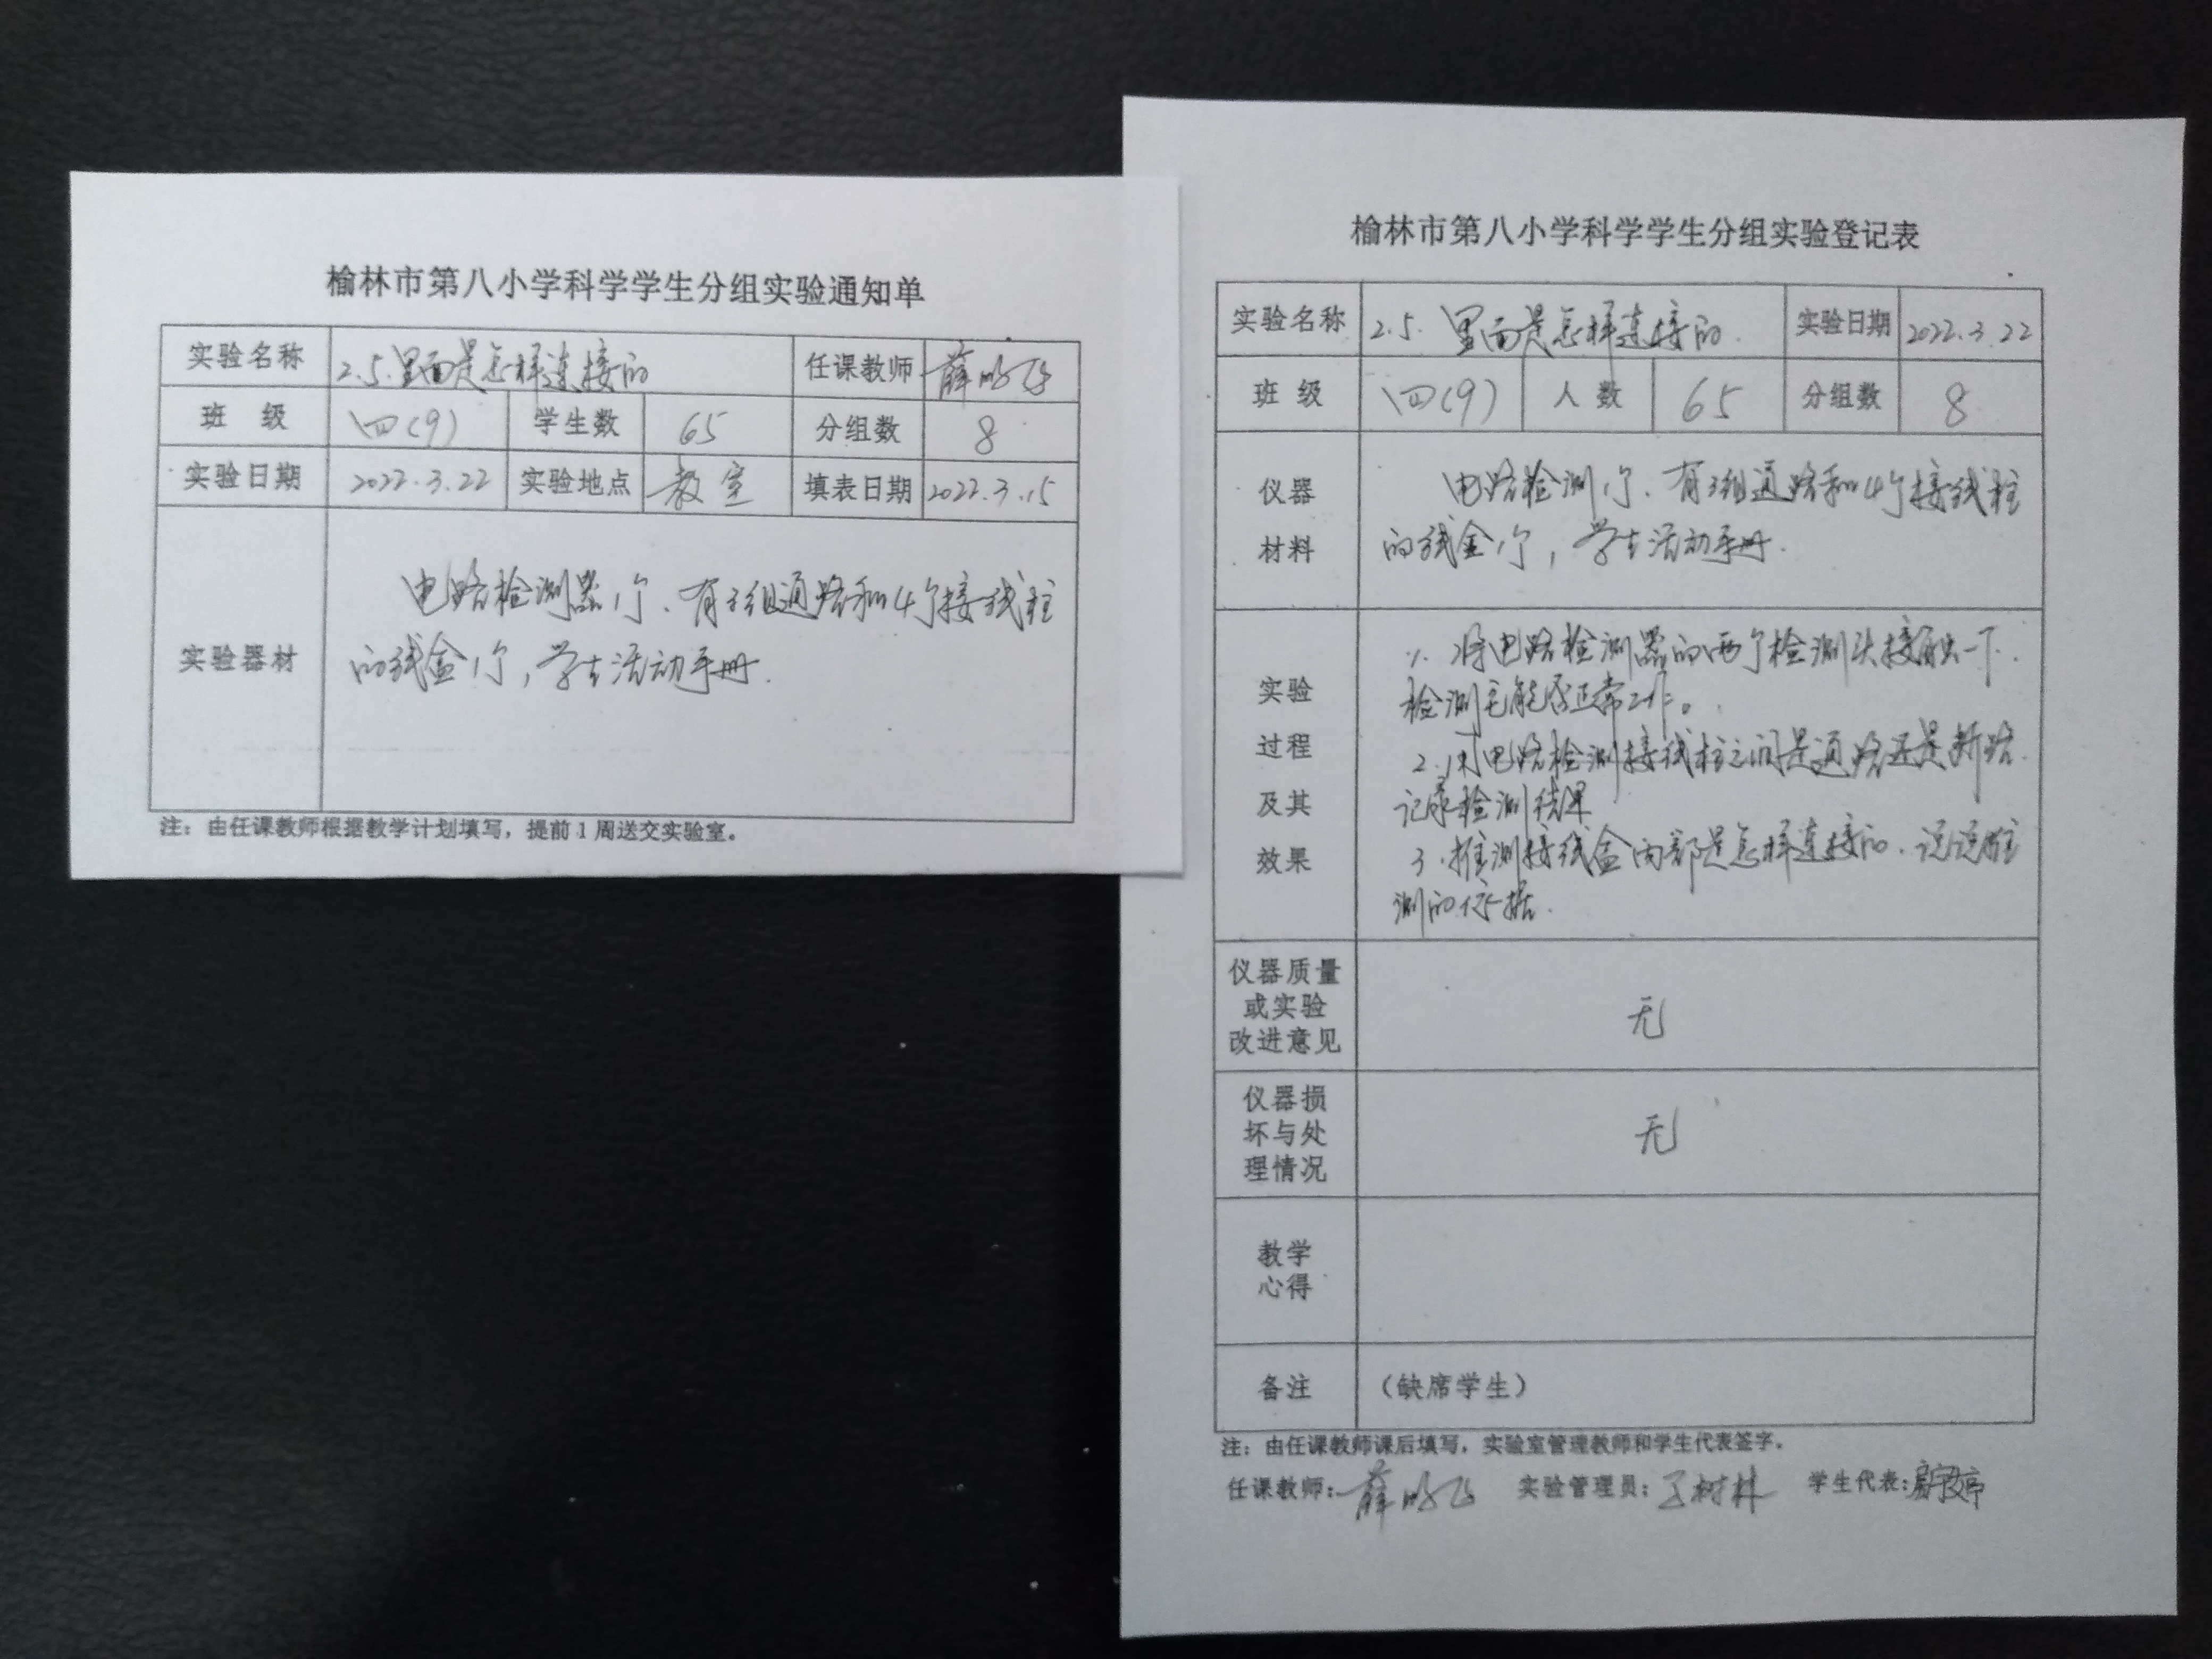 榆林市第八小学科学学生分组实验通知单
实验名称 2.5.里面是怎样连接的 任课教师 薛
班 级 四(9) 学生数 65 分组数 8
实验日期 2022.3.22 实验地点 教室 填表日期 2022.3.15
实验器材
电路检测器1个、有3组通路和4个接线柱
的线盒1个,学生活动手册.
注:由任课教师根据教学计划填写,提前1周送交实验室。
榆林市第八小学科学学生分组实验登记表
实验名称 2.5.里面是怎样连接的. 实验日期 2022.3.22
班 级 四(9) 人 数 65 分组数 8
仪器
材料
电路检测1个、有3组通路和4个接线柱
的线盒1个,学生活动手册.
实验
过程
及其
效果
1.将电路检测器的两个检测头接触一下.
检测它能否正常工作。
2.用电路检测接线柱之间是通路还是断路.
记录检测结果
3.推测接线盒内部是怎样连接的.说说推
测的依据.
仪器质量
或实验
改进意见
无
仪器损
坏与处
理情况
无
教学
心得
备注 (缺席学生)
注:由任课教师课后填写,实验室管理教师和学生代表签字。
任课教师:薛 实验管理员: 树林 学生代表: